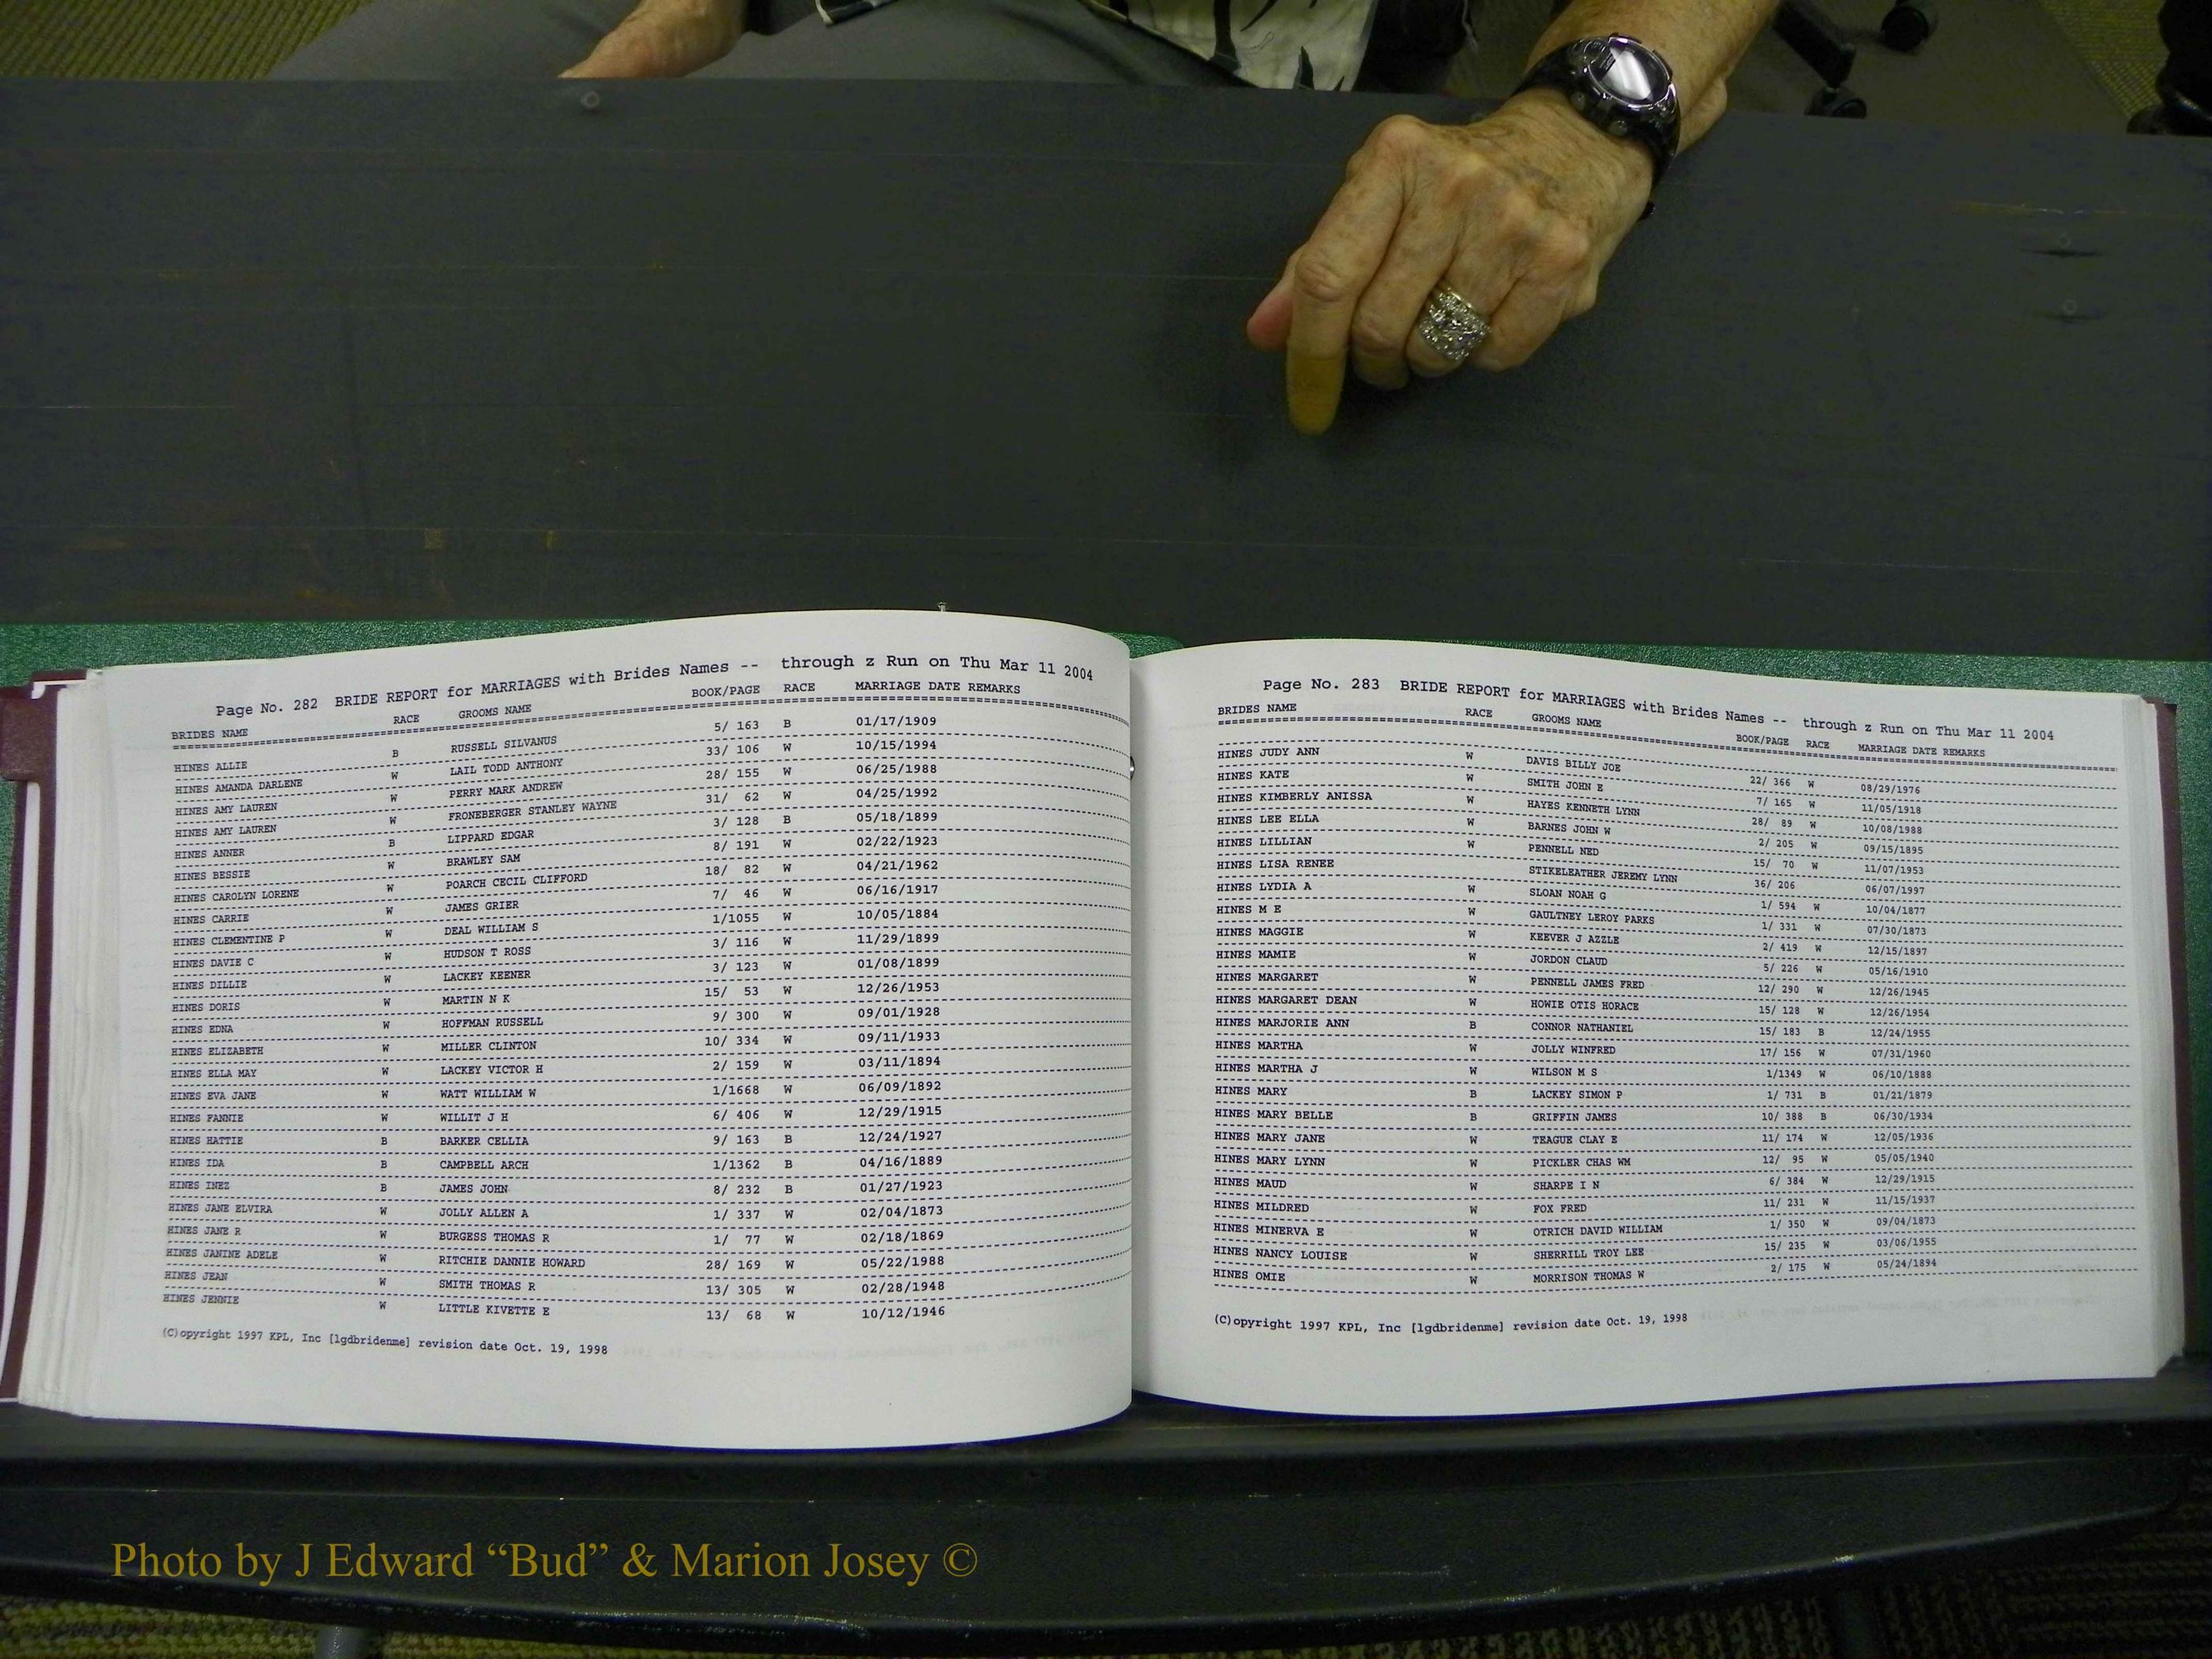 Page No. 282 BRIDE REPORT for MARRIAGES with Brides Names -- through z Run on Thu Mar 11 2004
BRIDES NAME RACE GROOMS NAME BOOK/PAGE RACE MARRIAGE DATE REMARKS
HINES ALLIE B RUSSELL SILVANUS 5/ 163 B 01/17/1909
HINES AMANDA DARLENE W LAIL TODD ANTHONY 33/ 106 W 10/15/1994
HINES AMY LAUREN W PERRY MARK ANDREW 28/ 155 W 06/25/1988
HINES AMY LAUREN W FRONEBERGER STANLEY WAYNE 31/ 62 W 04/25/1992
HINES ANNER B LIPPARD EDGAR 3/ 128 B 05/18/1899
HINES BESSIE W BRAWLEY SAM 8/ 191 W 02/22/1923
HINES CAROLYN LORENE W POARCH CECIL CLIFFORD 18/ 82 W 04/21/1962
HINES CARRIE W JAMES GRIER 7/ 46 W 06/16/1917
HINES CLEMENTINE P W DEAL WILLIAM S 1/1055 W 10/05/1884
HINES DAVIE C W HUDSON T ROSS 3/ 116 W 11/29/1899
HINES DILLIE W LACKEY KEENER 3/ 123 W 01/08/1899
HINES DORIS W MARTIN N K 15/ 53 W 12/26/1953
HINES EDNA W HOFFMAN RUSSELL 9/ 300 W 09/01/1928
HINES ELIZABETH W MILLER CLINTON 10/ 334 W 09/11/1933
HINES ELLA MAY W LACKEY VICTOR H 2/ 159 W 03/11/1894
HINES EVA JANE W WATT WILLIAM W 1/1668 W 06/09/1892
HINES FANNIE W WILLIT J H 6/ 406 W 12/29/1915
HINES HATTIE B BARKER CELLIA 9/ 163 B 12/24/1927
HINES IDA B CAMPBELL ARCH 1/1362 B 04/16/1889
HINES INEZ B JAMES JOHN 8/ 232 B 01/27/1923
HINES JANE ELVIRA W JOLLY ALLEN A 1/ 337 W 02/04/1873
HINES JANE R W BURGESS THOMAS R 1/ 77 W 02/18/1869
HINES JANINE ADELE W RITCHIE DANNIE HOWARD 28/ 169 W 05/22/1988
HINES JEAN W SMITH THOMAS R 13/ 305 W 02/28/1948
HINES JENNIE W LITTLE KIVETTE E 13/ 68 W 10/12/1946
(C)opyright 1997 KPL, Inc [lgdbridenme] revision date Oct. 19, 1998
Page No. 283 BRIDE REPORT for MARRIAGES with Brides Names -- through z Run on Thu Mar 11 2004
BRIDES NAME RACE GROOMS NAME BOOK/PAGE RACE MARRIAGE DATE REMARKS
HINES JUDY ANN W DAVIS BILLY JOE 22/ 366 W 08/29/1976
HINES KATE W SMITH JOHN E 7/ 165 W 11/05/1918
HINES KIMBERLY ANISSA W HAYES KENNETH LYNN 28/ 89 W 10/08/1988
HINES LEE ELLA W BARNES JOHN W 2/ 205 W 09/15/1895
HINES LILLIAN W PENNELL NED 15/ 70 W 11/07/1953
HINES LISA RENEE STIKELEATHER JEREMY LYNN 36/ 206 06/07/1997
HINES LYDIA A W SLOAN NOAH G 1/ 594 W 10/04/1877
HINES M E W GAULTNEY LEROY PARKS 1/ 331 W 07/30/1873
HINES MAGGIE W KEEVER J AZZLE 2/ 419 W 12/15/1897
HINES MAMIE W JORDON CLAUD 5/ 226 W 05/16/1910
HINES MARGARET W PENNELL JAMES FRED 12/ 290 W 12/26/1945
HINES MARGARET DEAN W HOWIE OTIS HORACE 15/ 128 W 12/26/1954
HINES MARJORIE ANN B CONNOR NATHANIEL 15/ 183 B 12/24/1955
HINES MARTHA W JOLLY WINFRED 17/ 156 W 07/31/1960
HINES MARTHA J W WILSON M S 1/1349 W 06/10/1888
HINES MARY B LACKEY SIMON P 1/ 731 B 01/21/1879
HINES MARY BELLE B GRIFFIN JAMES 10/ 388 B 06/30/1934
HINES MARY JANE W TEAGUE CLAY E 11/ 174 W 12/05/1936
HINES MARY LYNN W PICKLER CHAS WM 12/ 95 W 05/05/1940
HINES MAUD W SHARPE I N 6/ 384 W 12/29/1915
HINES MILDRED W FOX FRED 11/ 231 W 11/15/1937
HINES MINERVA E W OTRICH DAVID WILLIAM 1/ 350 W 09/04/1873
HINES NANCY LOUISE W SHERRILL TROY LEE 15/ 235 W 03/06/1955
HINES OMIE W MORRISON THOMAS W 2/ 175 W 05/24/1894
(C)opyright 1997 KPL, Inc [lgdbridenme] revision date Oct. 19, 1998
Photo by J Edward “Bud” & Marion Josey ©